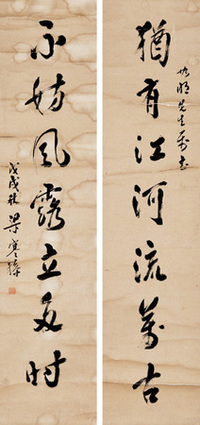 猶有江河流萬古
先生
不妨風露立多時
戊戌秋梁寒操